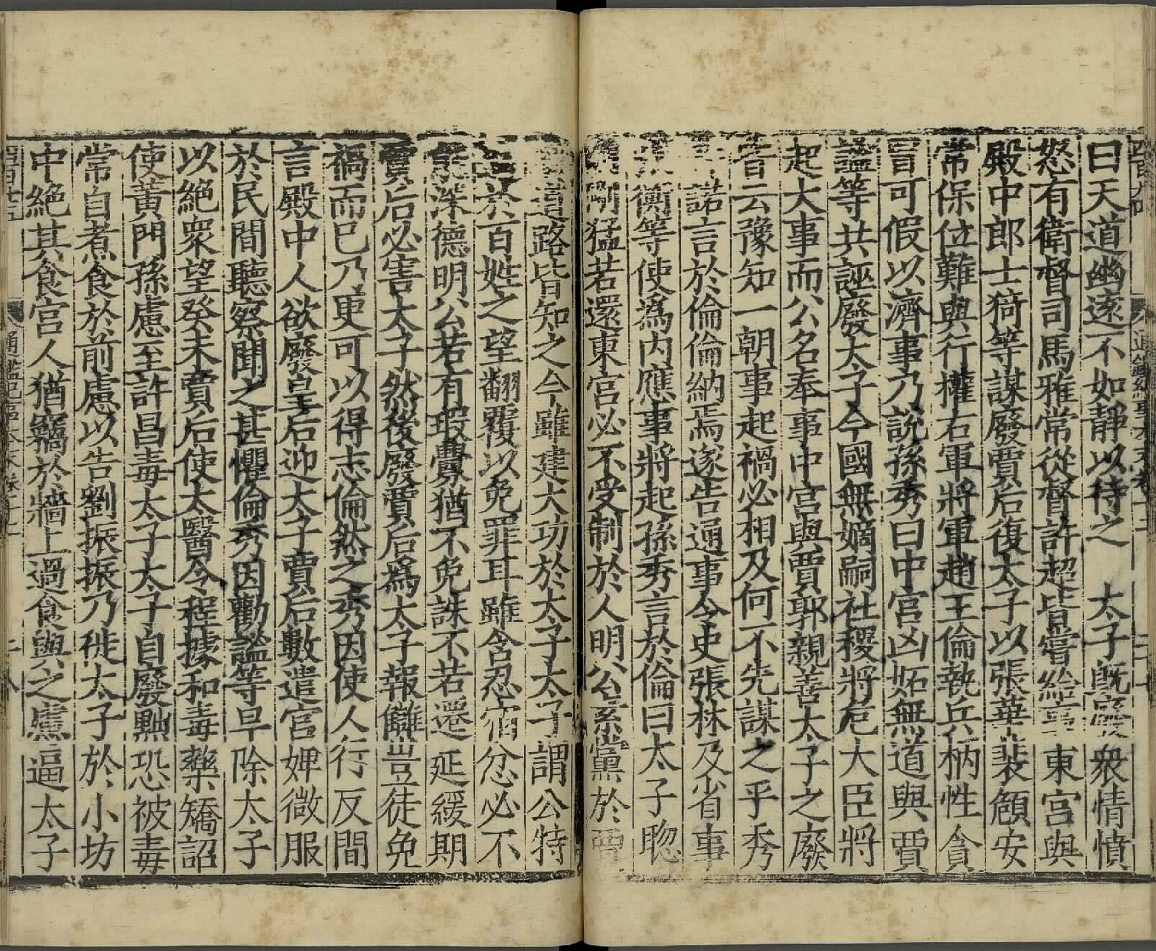 曰天道幽遠不如靜以待之　太子既廢衆情憤
怒有衛督司馬雅常從督許超皆嘗給事東宮與
殿中郎士猗等謀廢賈后復太子以張華裴頠安
常保位難與行權右軍將軍趙王倫執兵柄性貪
冒可假以濟事乃說孫秀曰中宮凶妬無道與賈
謐等共誣廢太子今國無嫡嗣社稷將危大臣將
起大事而公名奉事中宮與賈郭親善太子之廢
皆云豫知一朝事起禍必相及何不先謀之乎秀
諾言於倫倫納焉遂告通事令史張林及省事
衡等使爲内應事將起孫秀言於倫曰太子聦
剛猛若還東宮必不受制於人明公素黨於賈
道路皆知之今雖建大功於太子太子謂公特
於百姓之望翻覆以免罪耳雖含忍宿忿必不
深德明公若有瑕釁猶不免誅不若遷延緩期
賈后必害太子然後廢賈后爲太子報讎豈徒免
禍而已乃更可以得志倫然之秀因使人行反間
言殿中人欲廢皇后迎太子賈后數遣宮婢微服
於民間聽察聞之甚懼倫秀因勸謐等早除太子
以絶衆望癸未賈后使太醫令程據和毒藥矯詔
使黃門孫慮至許昌毒太子太子自廢黜恐被毒
常自煮食於前慮以告劉振振乃徙太子於小坊
中絶其食宮人猶竊於牆上過食與之慮逼太子